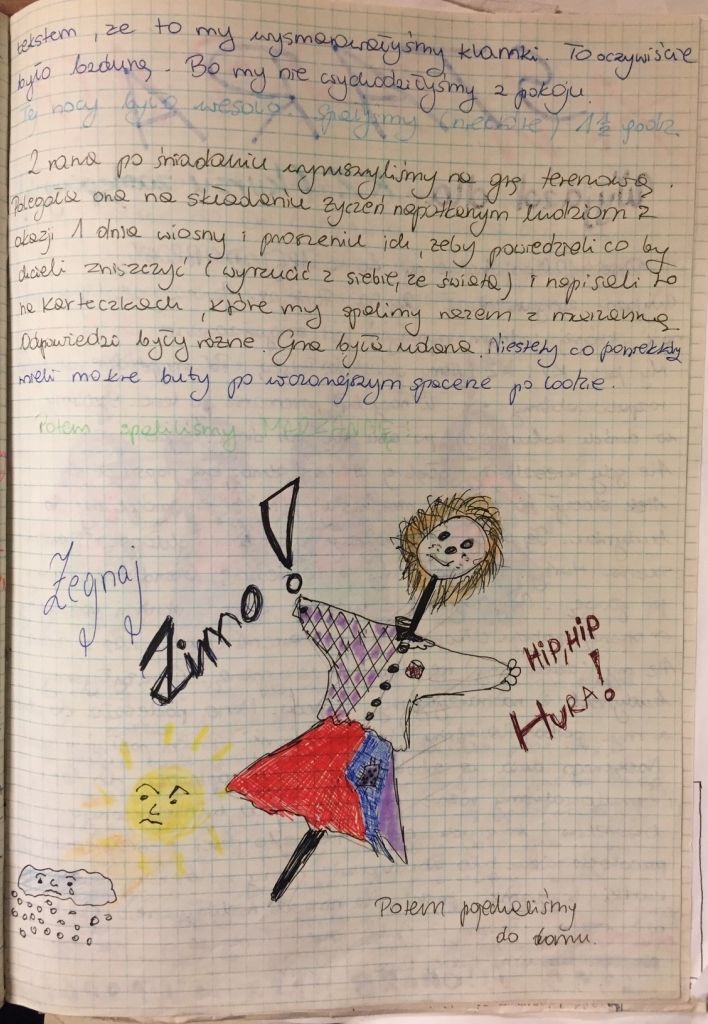 tekstem, że to my wysmarowałyśmy klamki. To oczywiście
było bzdurą. Bo my nie wychodziłyśmy z pokoju.
Tej nocy było wesoło. Spałyśmy (niecałe) 1 1/2 godz.
Z rana po śniadaniu wyruszyliśmy na grę terenową.
Polegała ona na składaniu życzeń napotkanym ludziom z
okazji 1 dnia wiosny i proszeniu ich, żeby powiedzieli co by
chcieli zniszczyć (wyrzucić z siebie, ze świata) i napisali to
na karteczkach, które my spalimy razem z marzanną
Odpowiedzi były różne. Gra była udana. Niestety co poniektórzy
mieli mokre buty po wczorajszym spacerze po wodzie.
Potem spaliliśmy MARZANNĘ!
Żegnaj
Zimo!
HIP, HIP
HURA!
Potem pojechaliśmy
do domu.